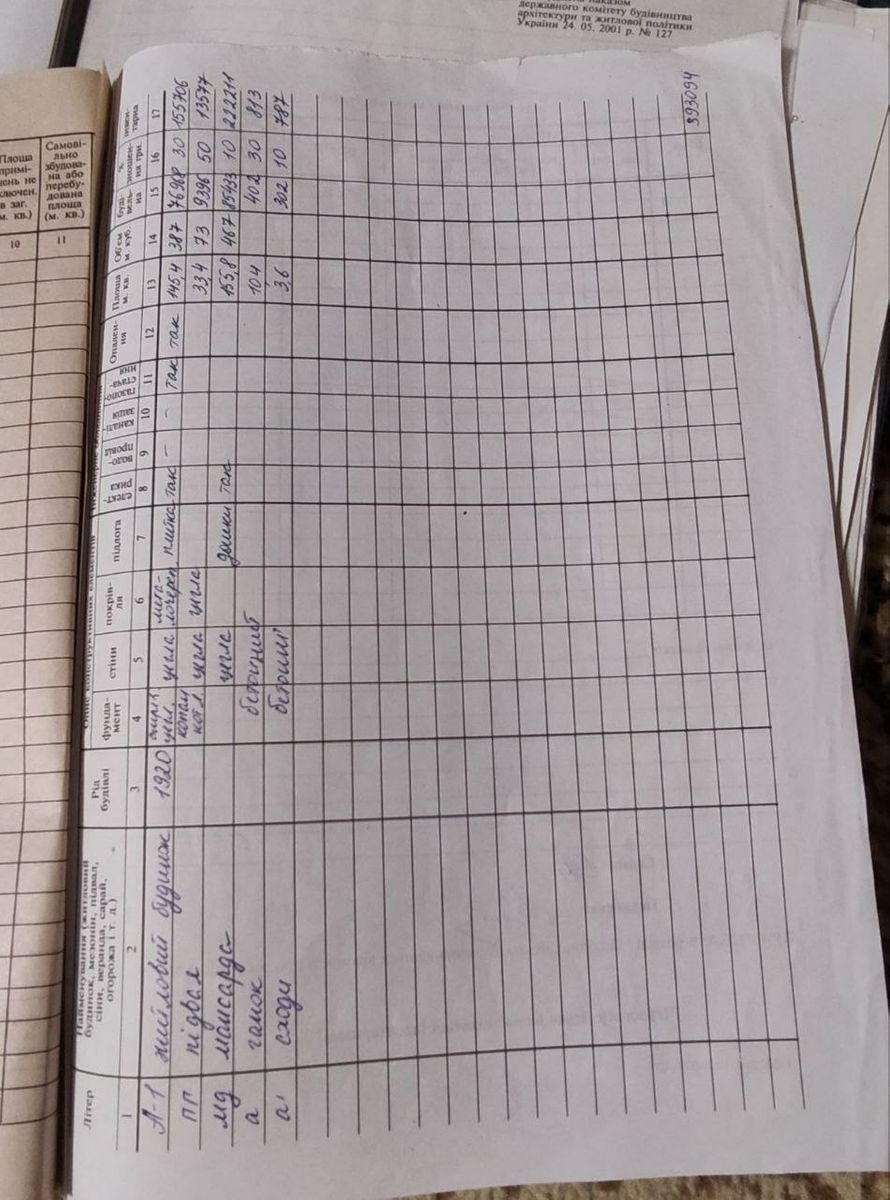 державного комітету будівництва
архітектури та житлової політики
України 24. 05. 2001 р. № 127
Самові-
льно
збудова-
на або
перебу-
дована
площа
(м. кв.)
10 11
Літер
Найменування (житловий
будинок, мезонін, підвал,
сіни, веранда, сарай,
огорожа і т. д.)
Рід
будівлі
фунда-
мент
стіни
покрів-
ля
підлога
елект-
рика
водо-
провід
каналі-
зація
газопо-
стача-
ння
Опален-
ня
Площа
м. кв.
Об'єм
м. куб.
буді-
вель-
на
%
зношен-
ня грн.
інвен-
тарна
1 2 3 4 5 6 7 8 9 10 11 12 13 14 15 16 17
А-1 житловий будинок 1920 цегла плитка так - - так так 145,4 387 76968 30 155706
пп підвал цегла цегла 33,4 73 9396 50 13577
мд мансарда цегла дошки так 155,8 467 10 222211
а ганок бетонний 10,4 402 30 813
а' сходи бетонні 3,6 302 10 787
393094